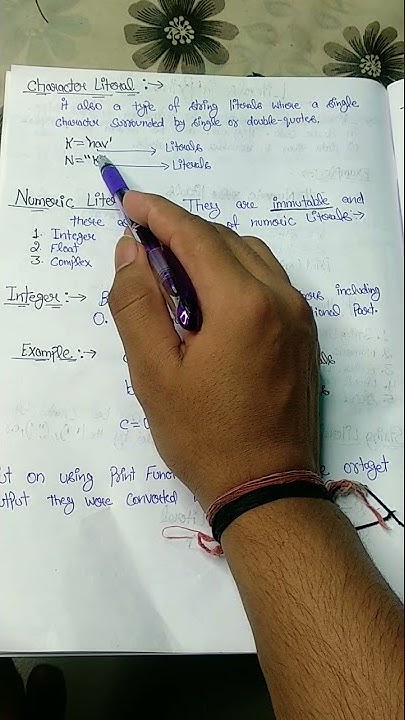 Character Literal :→
it also a type of string literals where a single
character surrounded by single or double-quotes.
K = 'nav' → Literals
N = "K → Literals
Numeric Lite They are immutable and
there of numeric Literals :→
1. Integer
2 Float
3. Complex
Integer :→ including
0. ional Part.
Example :→
b
c = 0
ut on using Print Func
utput they were converted